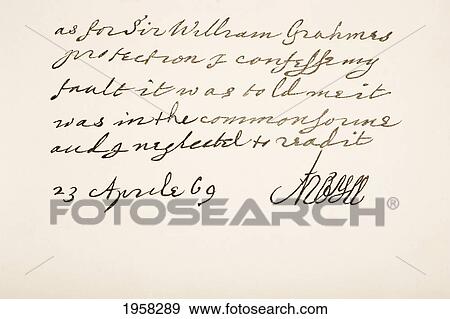 as for Sir William Grahmes
protection I confesse my
fault it was told me it
was in the common forme
and I neglected to read it
23 Aprile 69
FOTOSEARCH®
1958289 www.fotosearch.com